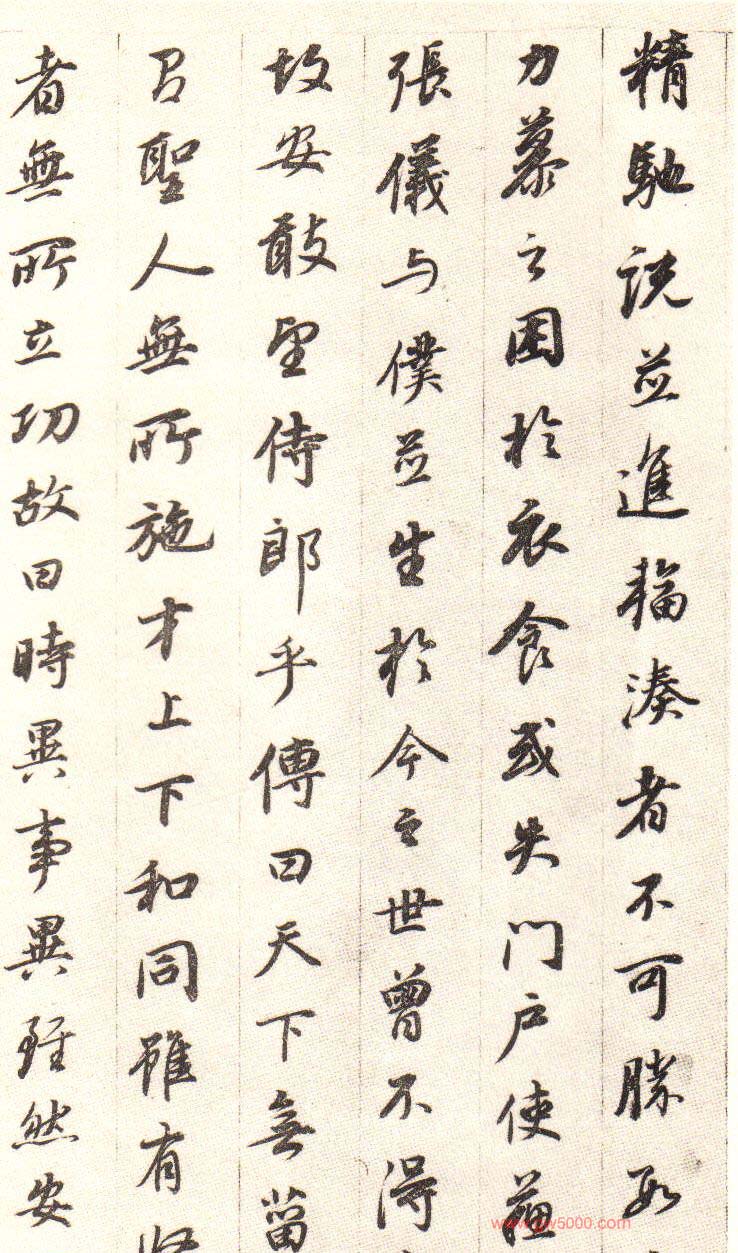 精馳說並進輻湊者不可勝數
力慕之困於衣食或失門戶使蘇
張儀与僕並生於今之世曾不得
故安敢望侍郎乎傳曰天下無菑
聖人無所施才上下和同雖有
者無所立功故曰時異事異雖然安